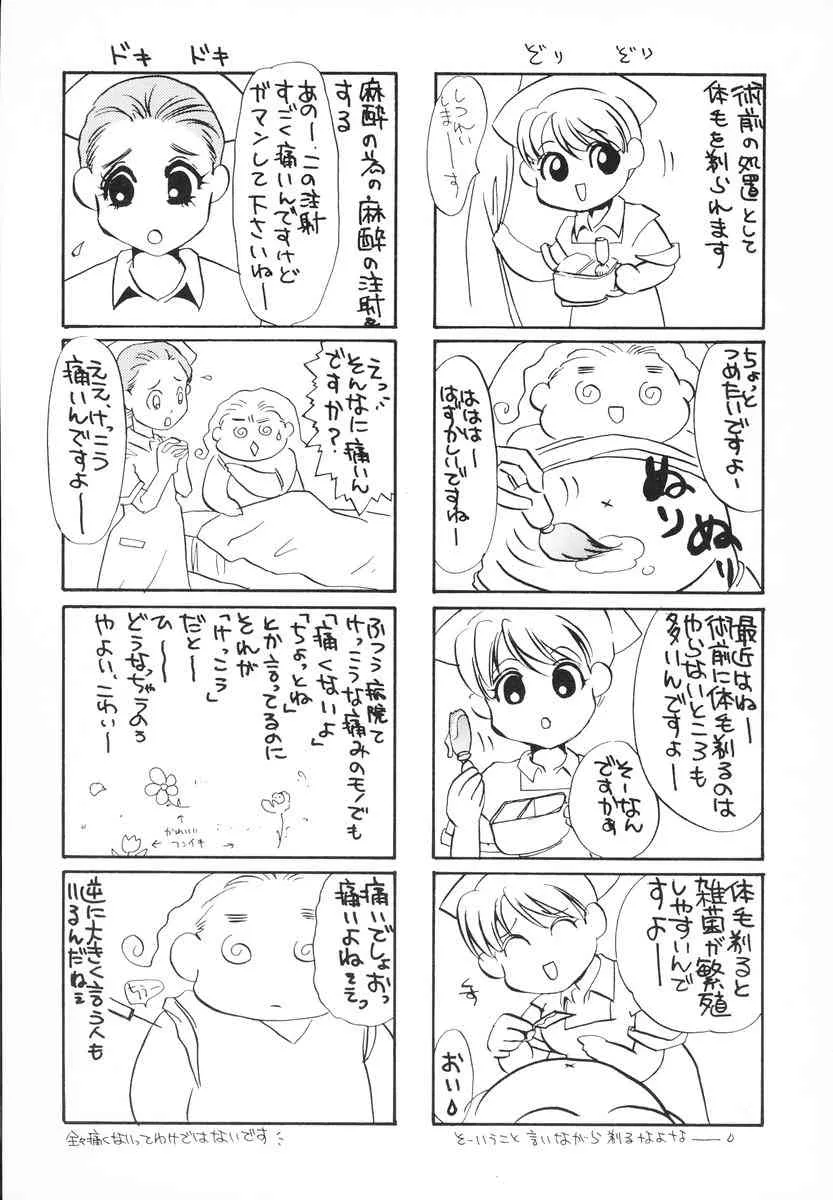 ぞり　ぞり
術前の処置として
体毛を剃られます
しつれい
しまーーす
ちょっと
つめたいですよー
ぬり
ぬり
ははは
はずかしいですねー
最近はねー
術前に体毛剃るのは
やらないところも
多いんですよー
そーなん
ですかぁ
体毛剃ると
雑菌が繁殖
しやすいんで
すよー
おい
そーいうこと言いながら剃るなよなーー
ドキ　ドキ
麻酔の為の麻酔の注射を
する
あのー、この注射
すごく痛いんですけど
ガマンして下さいねー
えっ
そんなに痛いん
ですか?
ええ、けっこう
痛いんですよー
ふつう病院て
けっこうな痛みのモノでも
「痛くないよ」
「ちょっとね」
とか言ってるのに
それが
「けっこう」
だとー
ひーー
どうなっちゃうのぅ
やよい、こわいー
↑
かわいい
← フンイキ →
痛いでしょおっ
痛いよねぇっ
チクー
逆に大きく言う人も
いるんだねぇ
全々痛くないってわけではないです